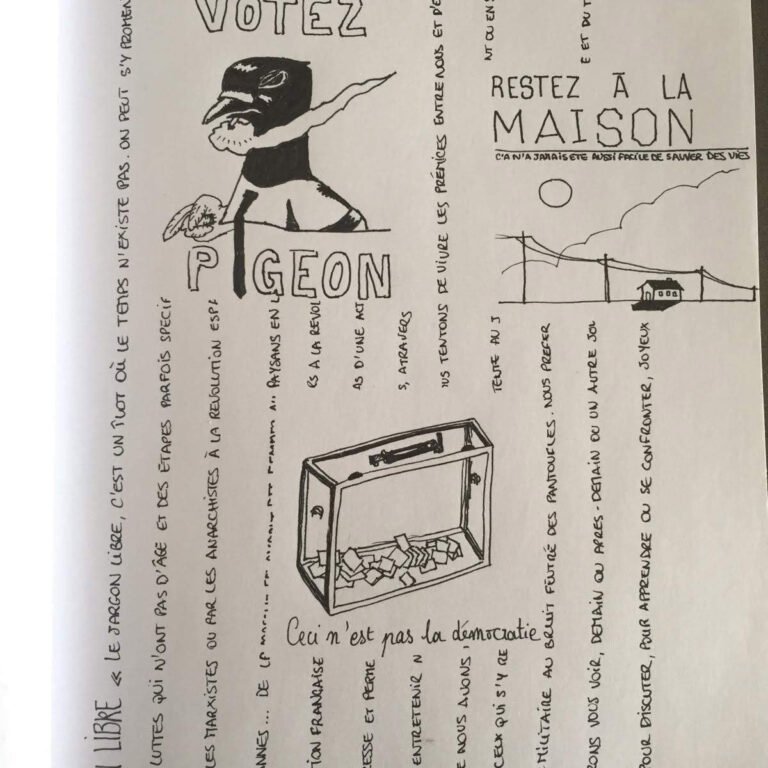 VOTEZ
PIGEON
RESTEZ À LA
MAISON
C'A N'A JAMAIS ETE AUSSI FACILE DE SAUVER DES VIES
Ceci n'est pas la démocratie
LIBRE « LE JARGON LIBRE, C'EST UN ÎLOT OÙ LE TEMPS N'EXISTE PAS. ON PEUT S'Y PROMEN
LUTTES QUI N'ONT PAS D'ÂGE ET DES ÉTAPES PARFOIS SPECIF
LES MARXISTES OU PAR LES ANARCHISTES À LA REVOLUTION ESPA
ANNES... DE PAYSANS EN L
TION FRANÇAISE ES A LA REVOL
ESSE ET PERME AS D'UNE ACT
ENTRETENIR N S, A TRAVERS
E NOUS AVONS, OUS TENTONS DE VIVRE LES PRÉMICES ENTRE NOUS ET D'E
CEUX QUI S'Y RE TENTE AU J NT OU EN S
MILITAIRE AU BRUIT FEUTRÉ DES PANTOUFLES. NOUS PREFER
RONS VOUS VOIR, DEMAIN OU APRES-DEMAIN OU UN AUTRE JOU E ET DU T
POUR DISCUTER, POUR APPRENDRE OU SE CONFRONTER, JOYEUX